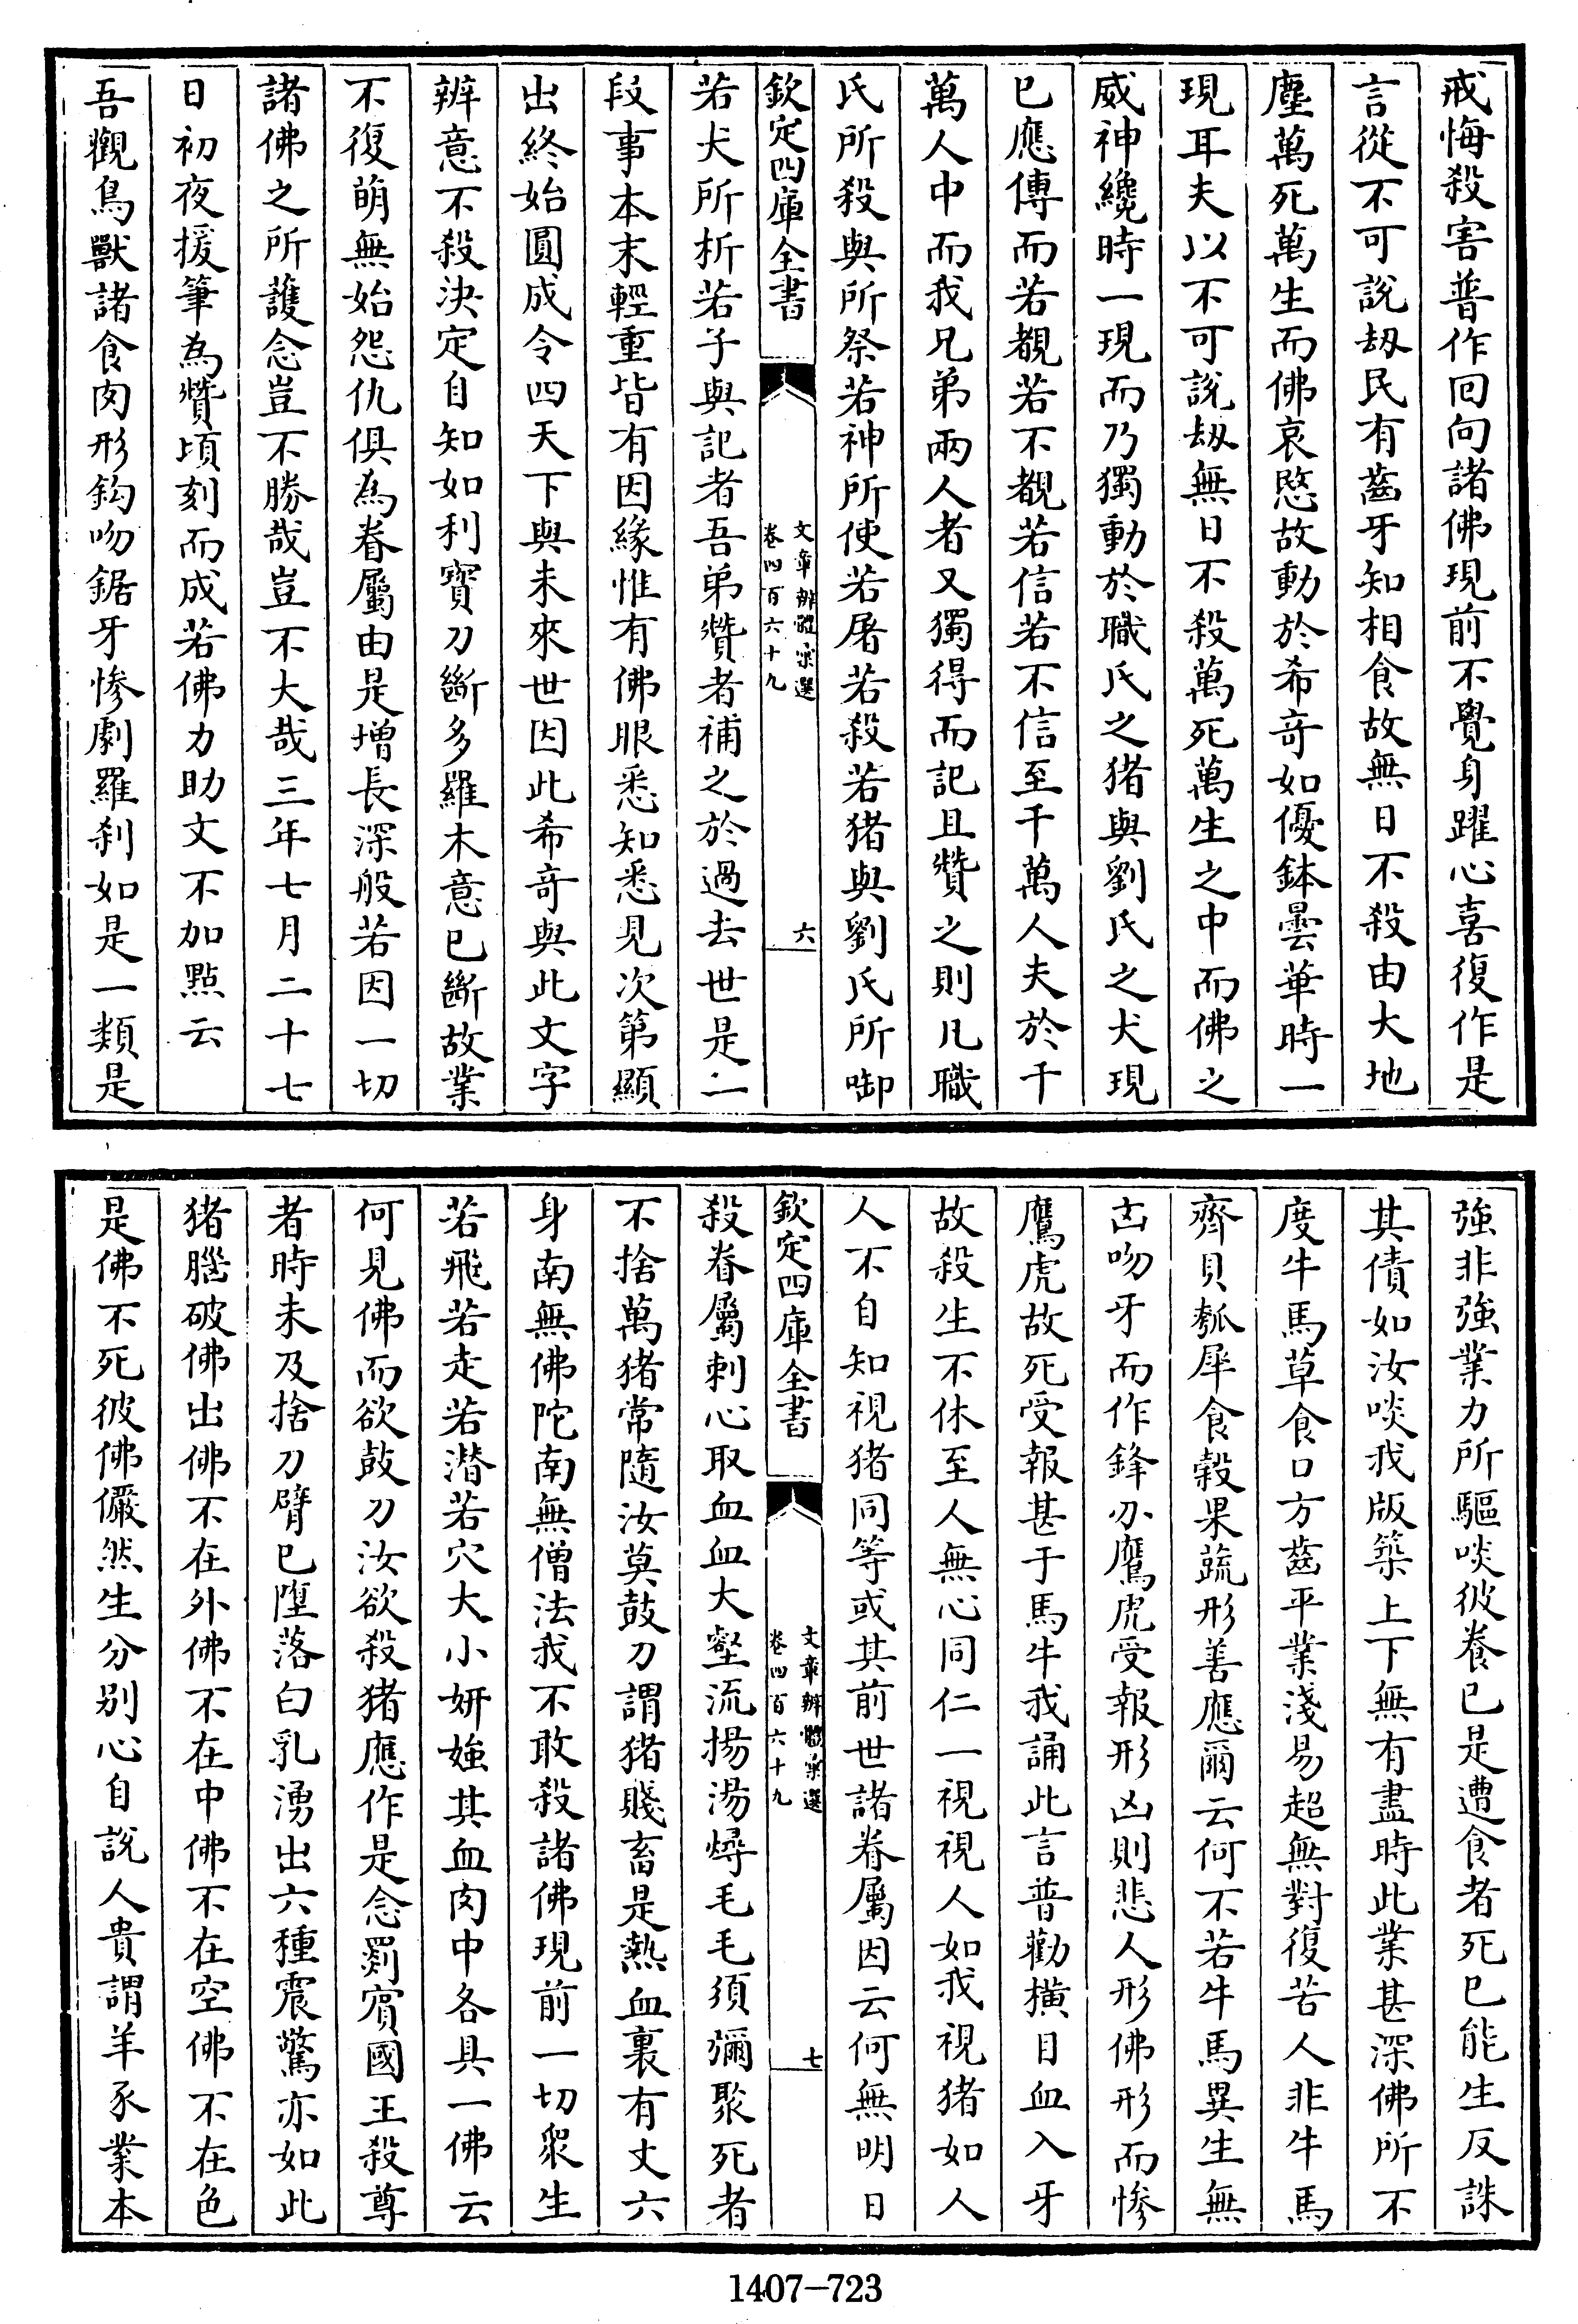 戒悔殺害普作回向諸佛現前不覺身躍心喜復作是
言從不可說刼民有齒牙知相食故無日不殺由大地
塵萬死萬生而佛哀愍故動於希竒如優鉢曇華時一
現耳夫以不可說刼無日不殺萬死萬生之中而佛之
威神纔時一現而乃獨動於職氏之猪與劉氏之犬現
已應傳而若覩若不覩若信若不信至千萬人夫於千
萬人中而我兄弟兩人者又獨得而記且贊之則凡職
氏所殺與所祭若神所使若屠若殺若猪與劉氏所啣
欽定四庫全書
文章辨體彚選
卷四百六十九
六
若犬所析若子與記者吾弟贊者補之於過去世是二
段事本末輕重皆有因緣惟有佛眼悉知悉見次第顯
出終始圓成令四天下與未來世因此希竒與此文字
辨意不殺決定自知如利寳刀斷多羅木意已斷故業
不復萌無始怨仇俱為眷屬由是增長深般若因一切
諸佛之所護念豈不勝哉豈不大哉三年七月二十七
日初夜援筆為贊頃刻而成若佛力助文不加點云
吾觀鳥獸諸食肉形鈎吻鋸牙慘劇羅刹如是一類是
強非強業力所驅啖彼養已是遭食者死已能生反誅
其債如汝啖我版築上下無有盡時此業甚深佛所不
度牛馬草食口方齒平業淺易超無對復苦人非牛馬
齊貝瓠犀食榖果蔬形善應爾云何不若牛馬異生無
古吻牙而作鋒刅鷹虎受報形凶則悲人形佛形而慘
鷹虎故死受報甚于馬牛我誦此言普勸橫目血入牙
故殺生不休至人無心同仁一視視人如我視猪如人
人不自知視猪同等或其前世諸眷屬因云何無明日
欽定四庫全書
文章辨體彚選
卷四百六十九
七
殺眷屬刺心取血血大壑流揚湯燖毛毛須彌聚死者
不捨萬猪常隨汝莫鼓刀謂猪賤畜是熱血裏有丈六
身南無佛陀南無僧法我不敢殺諸佛現前一切衆生
若飛若走若潜若穴大小妍媸其血肉中各具一佛云
何見佛而欲鼓刀汝欲殺猪應作是念罽賓國王殺尊
者時未及捨刀臂已墮落白乳湧出六種震驚亦如此
猪腦破佛出佛不在外佛不在中佛不在空佛不在色
是佛不死彼佛儼然生分别心自說人貴謂羊豕業本
1407-723